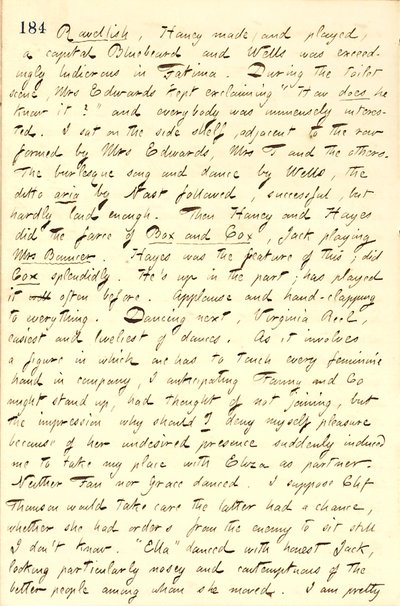 184 Rawdlish, Haney made, and played,
a capital Bluebeard and Wells was exceed-
ingly ludicrous in Fatima. During the toilet
scene, Mrs Edwards kept exclaiming "How does he
know it?" and everybody was immensely interes-
ted. I sat on the side shelf, adjacent to the row
formed by Mrs Edwards, Mrs T and the others.
The burlesque song and dance by Wells, the
ditto aria by Nast followed, successful, but
hardly loud enough. Then Haney and Hayes
did the farce of Box and Cox, Jack playing
Mrs Bouncer. Hayes was the feature of this; did
Cox splendidly. He's up in the part; has played
it often before. Applause and hand-clapping
to everything. Dancing next, Virginia Reel,
easiest and liveliest of dances. As it involves
a figure in which one has to touch every feminine
hand in company, I anticipating Fanny and Co
might stand up, had thought of not joining, but
the impression why should I deny myself pleasure
because of her undesired presence suddenly induced
me to take my place with Eliza as partner.
Neither "Fan" nor Grace danced. I suppose Clif
Thomson would take care the latter had a chance,
whether she had orders from the enemy to sit still
I don't know. "Ella" danced with honest Jack,
looking particularly nosey and contemptuous of the
better people among whom she moved. I am pretty